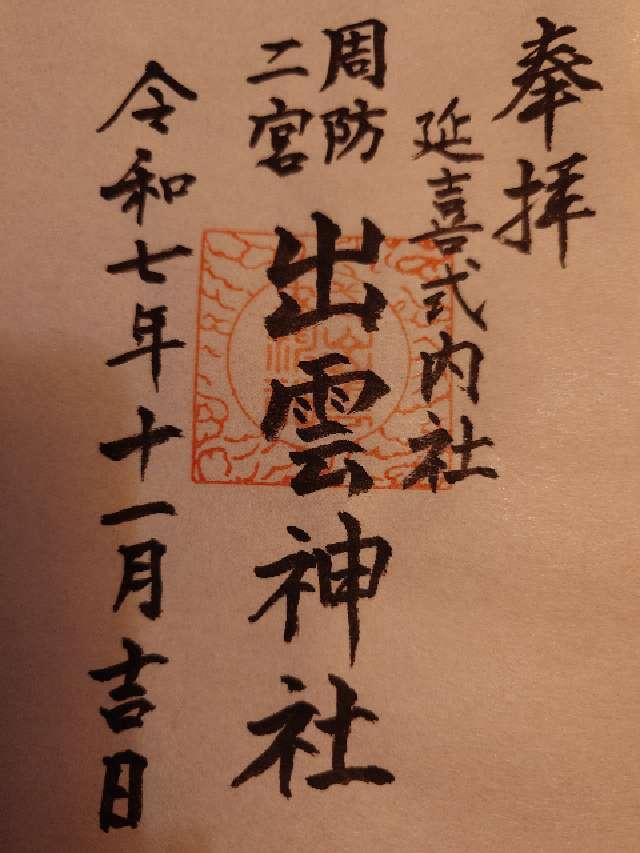 奉拝
延喜式内社
周防
二宮
出雲神社
令和七年十一月吉日